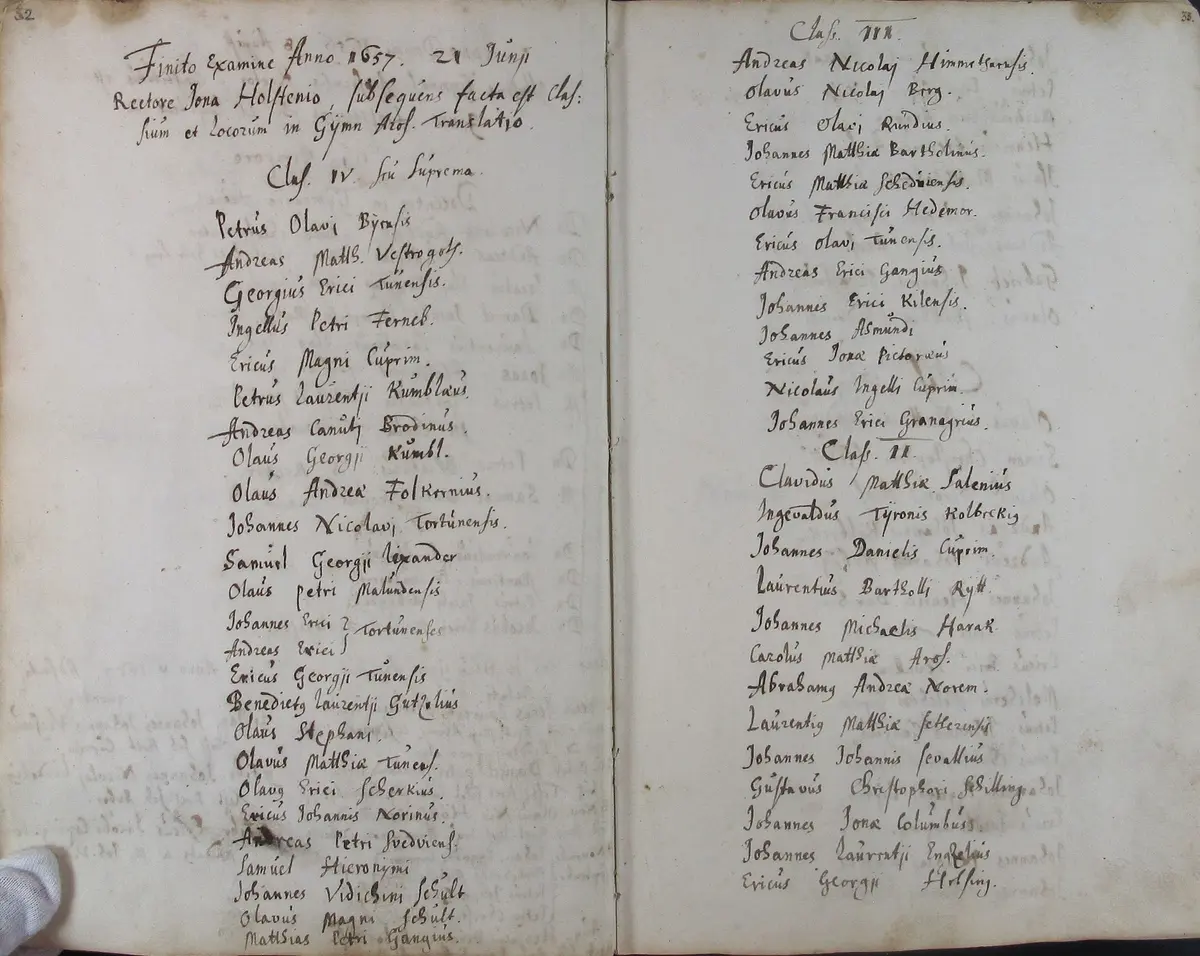 32
Finito Examine Anno 1657. 21 Junij
Rectore Jona Holstenio, subsequens facta est Clas:
sium et Locorum in Gÿmn Aros. Translatio.
Clas. IV. seu Suprema.
Petrus Olavi Byensis
Andreas Matth. Vestrogoth.
Georgius Erici Tunensis.
Ingellus PetriFerneb.
Ericus Magni Cuprim.
Petrus Laurentji Kumblæus.
Andreas Canuti Brodinus.
Olaus Georgji Kumbl.
Olaus Andreæ Folkernius.
Johannes Nicolavi Tortunensis.
Samuel Georgji Lixander
Olaus Petri Malundensis
Johannes Erici } Tortunenses
Andreas Erici }
Ericus Georgji Tunensis
Benedictg Laurentji Gutzelius
Olaus Stephani.
Olavus Matthiæ Tunens.
Olavg Erici Scherkius.
Ericus Johannis Norinus.
Andreas Petri Svedviens.
Samuel Hieronymi
Johannes Vidichini Schult
Olavus Magni Schult.
Matthias Petri Gangius.
Class. III.
Andreas Nicolaj
Olavus Nicolaj Berg.
Ericus Olavi Rundius.
Johannes Matthiæ Barthelinus.
Ericus Matthiæ Scheduiensis.
Olavus Francisci Hedemor.
Ericus Olavi Tunensis.
Andreas Erici Gangius
Johannis Erici Kilensis.
Johannes Asmundi
Ericus Jonæ Pictoræus
Nicolaus Ingelli Cuprim.
Johannes Erici Granagrius.
Class. II.
Clavidus Matthiæ Salenius
Ingevaldus Tyronis Kolbeckig
Johannes Danielis Cuprim.
Laurentius Bartholli Rytt.
Johannes Michaelis Harak
Carolus Matthiæ Aros.
Abrahamg Andreæ Norem.
Laurentig Matthiæ Setterensis
Johannes Johannis Sevallius
Gustavus Christophori Schilling
Johannes Jonæ Columbus.
Johannes Laurentji Engelius
Ericus Georgji Helsing.